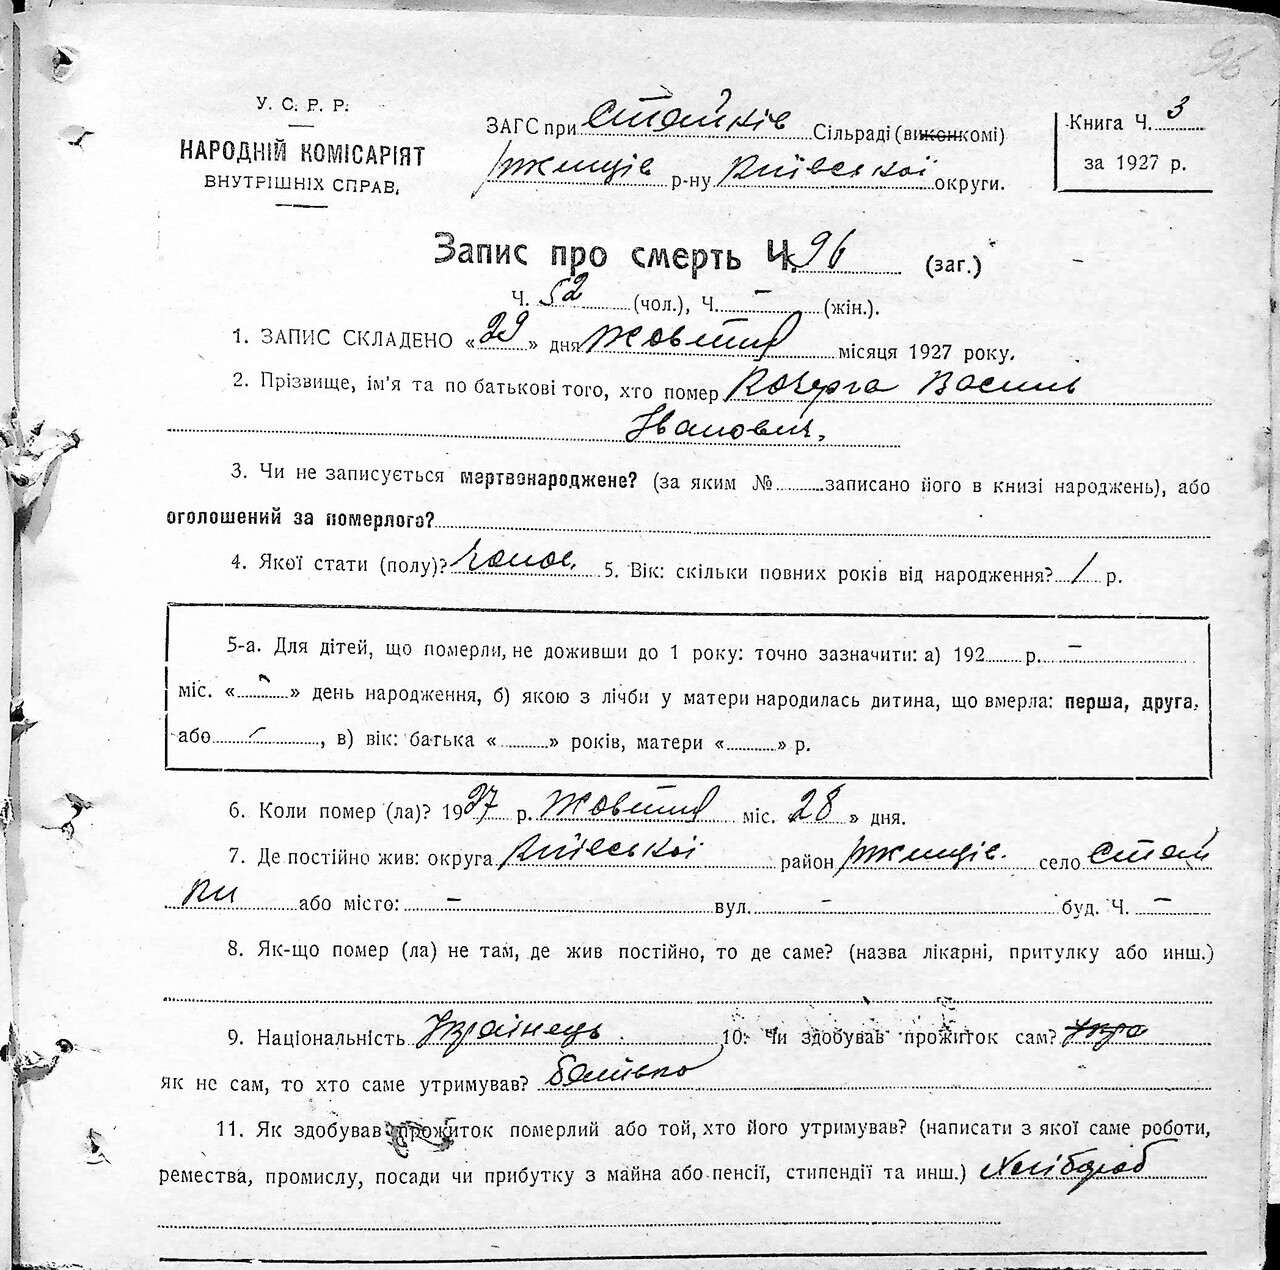 96
У. С. Р. Р.
НАРОДНІЙ КОМІСАРІЯТ
ВНУТРІШНІХ СПРАВ,
ЗАГС при Стайків Сільраді (виконкомі)
Ржищів р-ну Київської округи.
Книга Ч. 3
за 1927 р.
Запис про смерть Ч. 96 (заг.)
Ч. 52 (чол.), Ч. – (жін.).
1. ЗАПИС СКЛАДЕНО «29» дня Жовтня місяця 1927 року.
2. Прізвище, ім'я та по батькові того, хто помер Кочерга Василь
Іванович,
3. Чи не записується мертвонароджене? (за яким №..........записано його в книзі народжень), або
оголошений за померлого?
4. Якої стати (полу)? чолов. 5. Вік: скільки повних років від народження? 1 р.
5-а. Для дітей, що померли, не доживши до 1 року: точно зазначити: а) 192........р. –
міс. «........» день народження, б) якою з лічби у матери народилась дитина, що вмерла: перша, друга,
або – , в) вік: батька «..........» років, матери «..........» р.
6. Коли помер (ла)? 1927 р. Жовтня міс. 28 » дня.
7. Де постійно жив: округа Київської район Ржищів. село Стай
ки або місто: – вул. – буд. Ч. –
8. Як-що помер (ла) не там, де жив постійно, то де саме? (назва лікарні, притулку або инш.)
9. Національність Українець. 10. Чи здобував прожиток сам?
як не сам, то хто саме утримував? батько
11. Як здобував прожиток померлий або той, хто його утримував? (написати з якої саме роботи,
ремества, промислу, посади чи прибутку з майна або пенсії, стипендії та инш.) Хлібороб